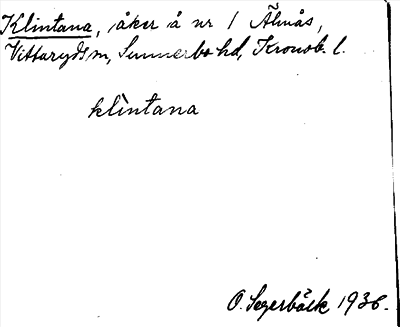 Klintana, åker å nr 1 Älmås,
Vittaryds sn, Sunnerbo hd, Kronob. l.
klìntana
O. Segerbäck 1936.